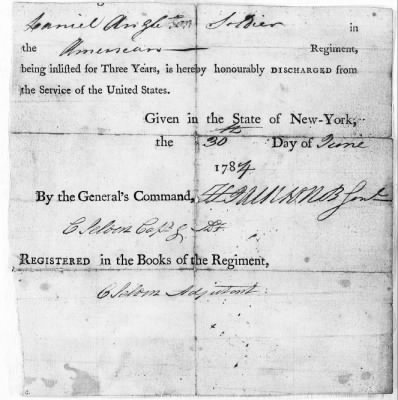 Daniel Soldier in
the American Regiment,
being inlisted for Three Years, is hereby honourably DISCHARGED from
the Service of the United States.
Given in the State of New-York,
the 30th Day of June
1784
By the General's Command,
C Selden Capt &
REGISTERED in the Books of the Regiment,
C Selden Adjutant